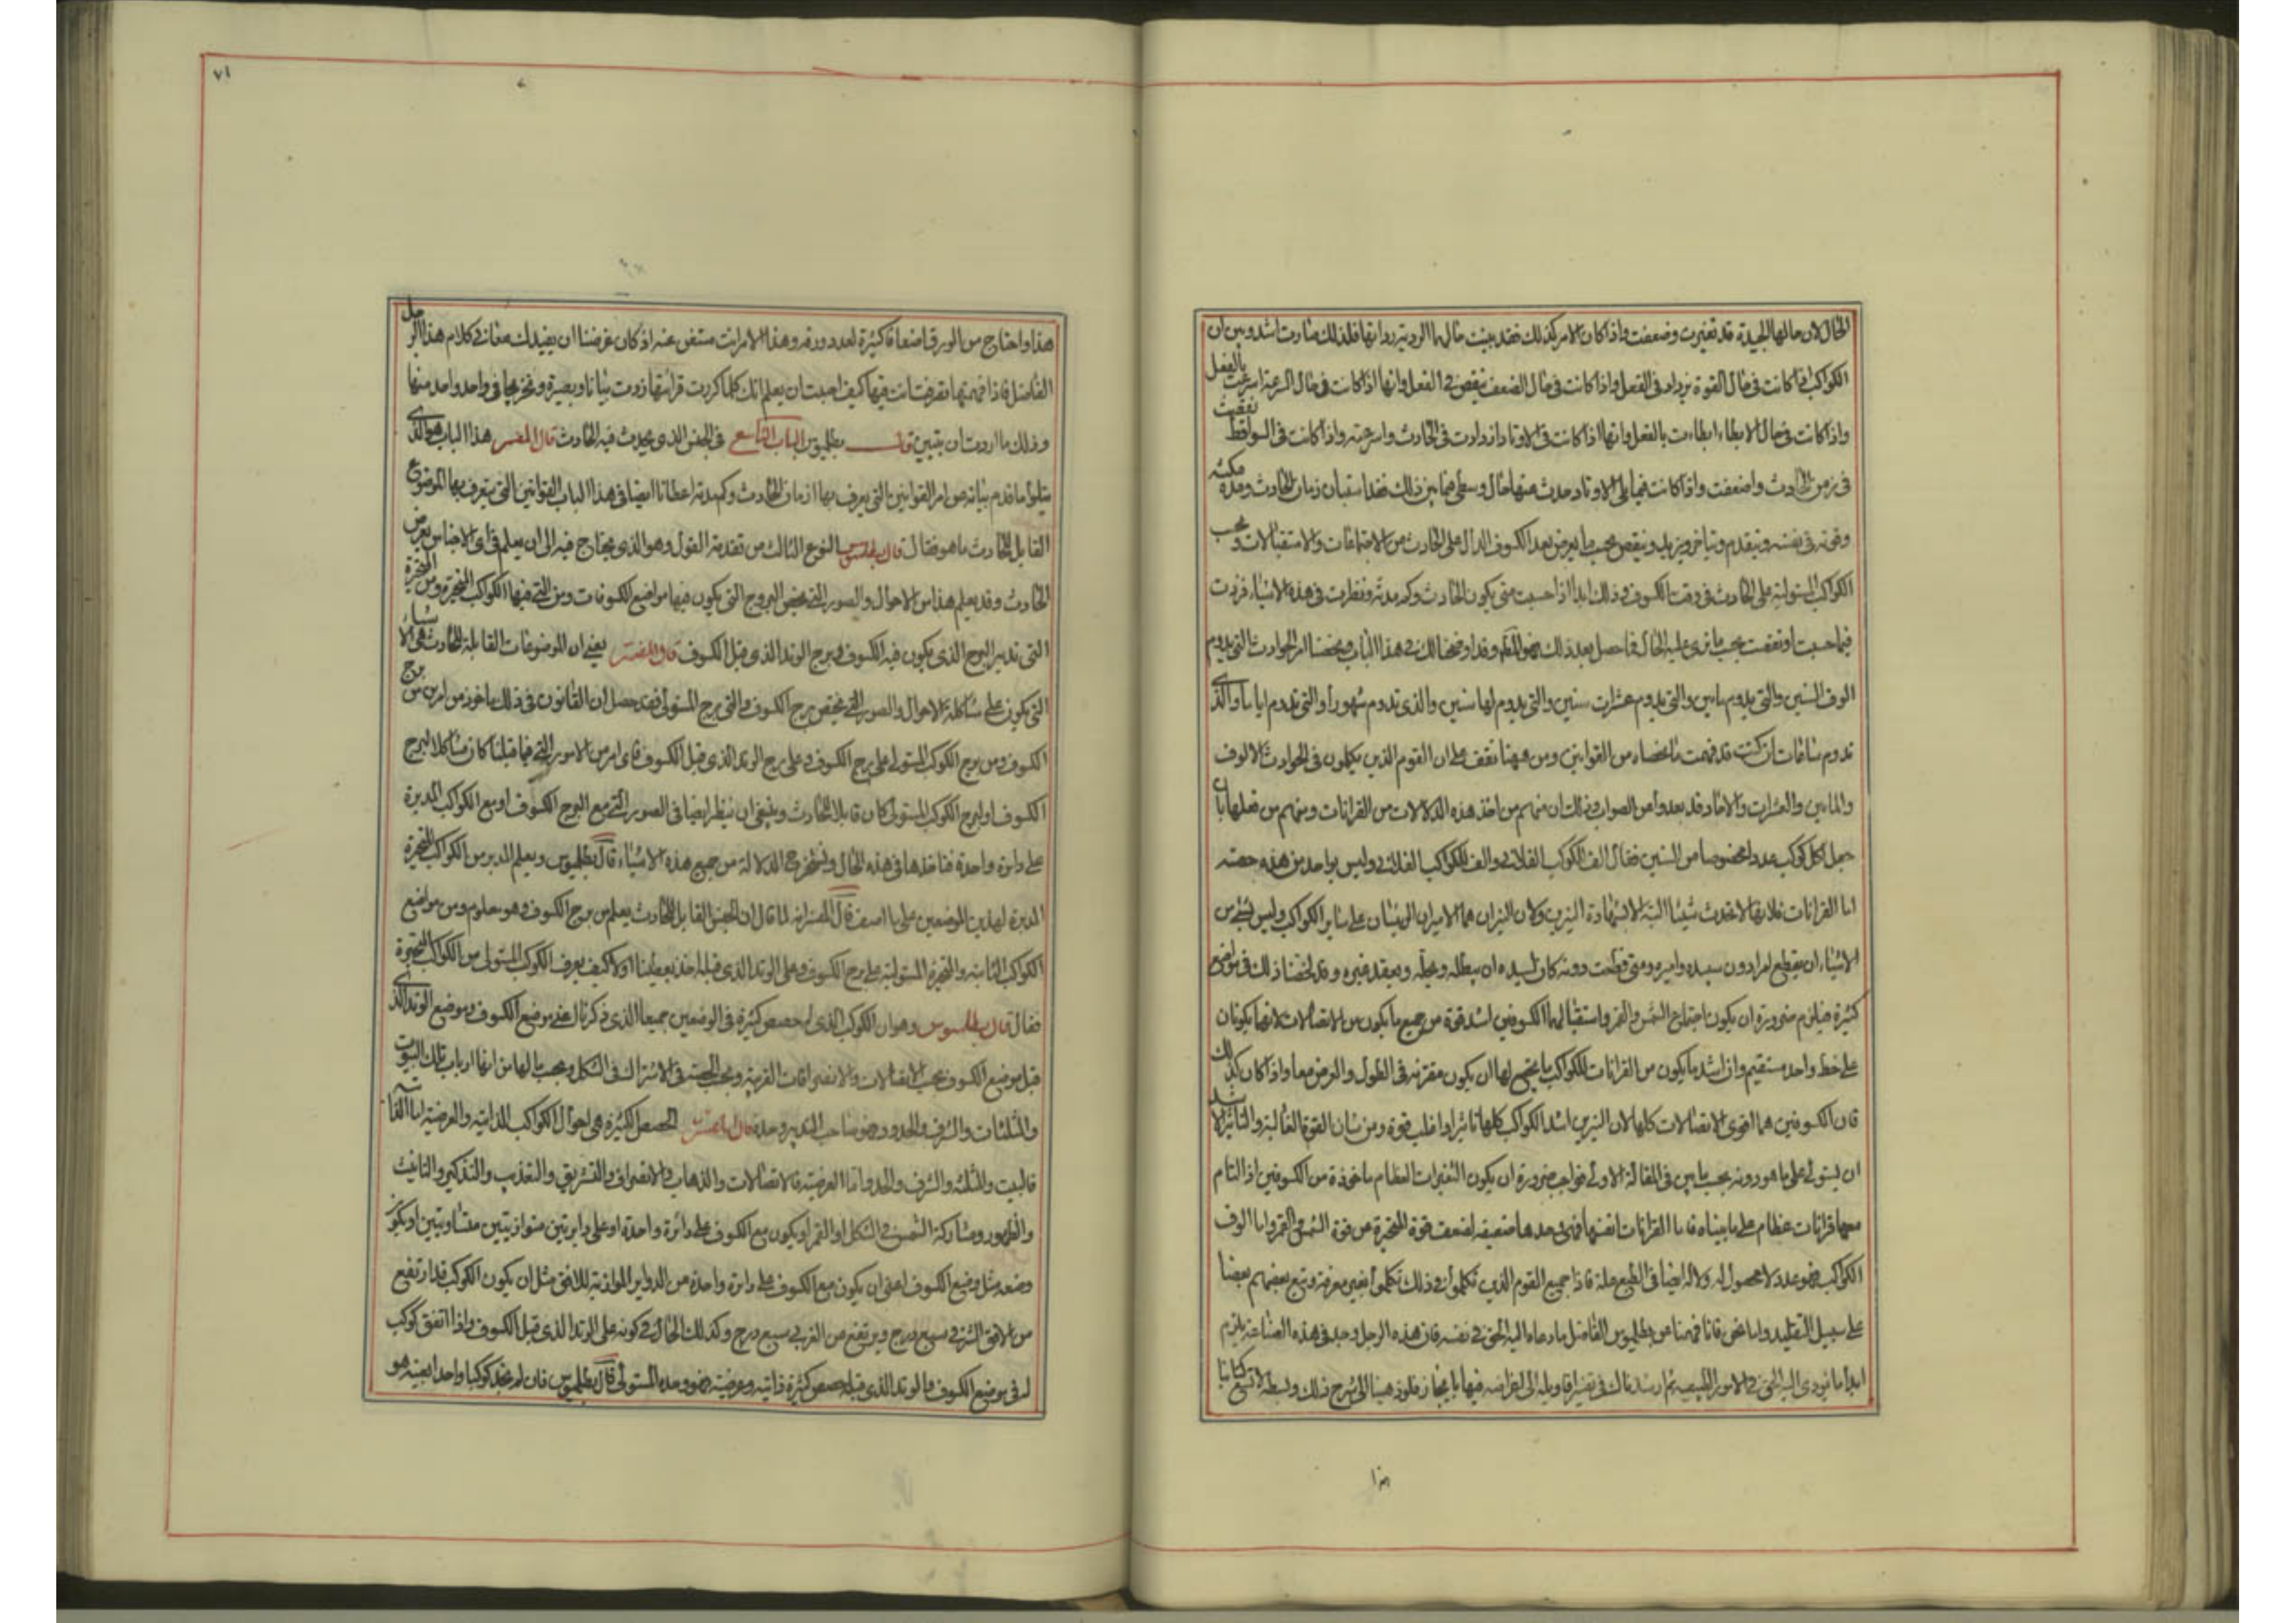 الحال لان حالها الجيدة قد تغيرت وضعفت واذا كان الامر كذلك فقد بينت حال
الكواكب اذا كانت في حال القوة يزداد في الفعل واذا كانت في حال الضعف ينقص في الفعل وانها اذا كانت في حال السرعة اسرعت بالفعل
واذا كانت في حال الابطاء ابطاءت بالفعل وانها اذا كانت في الاوتاد ازدادت في الحادث واسرعته واذا كانت في السواقط نقصت
في زمن الحادث واضعفت واذا كانت فيما يلي الاوتاد حدث عنها حال وسطى فيما بين ذلك فقد استبان زمان الحادث ومدة مكثه
وقوته في نفسه ويتقدم ويتاخر ويزيد وينقص بحسب ما يعرض بعد الكسوف الدال على الحادث من الاجتماعات والاستقبالات وبحسب
الكواكب المستولية على الحادث في وقت الكسوف في ذلك ابدا اذا احببت متى يكون الحادث وكم مدته ونظرت في هذه الاشياء فزدت
الوف السنين والتي يدوم مايين والتي يدوم عشرات سنين والتي يدوم لها سنين والذي تدوم شهورا والتي تدوم اياما والذي
تدوم ساعات ان كنت قد فهمت ما مضى من القوانين ومن ههنا تقف على ان القوم الذين يتكلمون في الحوادث الالوف
والمايين والعشرات والاحاد قد بعدوا من الصواب وذلك ان منهم من اخذ هذه الدلالات من القرانات ومنهم من فعلها بان
جعل لكل كوكب عددا مخصوصا من السنين فقال الف الكوكب الفلاني والف للكواكب الفلاني وليس بواحد من هذه حصته
اما القرانات فلانها لا تحدث شيئا البتة الا بشهادة النيرين ولان النيران هما الاميران الرئيسان على ساير الكواكب وليس لشي من
الاشياء ان يقطع امرا دون سيده واميره ومتى قطعت دونه كان لسيده ان يبطله ويحله ويعقد غيره وقد لخصنا ذلك في مواضع
كثيرة فيلزم ضرورة ان يكون اجتماع الشمس والقمر واستقبالهما الكسوفين اشد قوة من جميع ما يكون من الاتصالات لانهما يكونان
على خط واحد مستقيم وان اشد ما يكون من القرانات للكواكب ما يجتمع لها ان يكون مقترنة في الطول والعرض معا واذا كان كذلك
فان الكسوفين هما اقوى الاتصالات كلها لان النيرين اشد الكواكب كلها تاثيرا واغلب قوة ومن شان القوة الغالبة والتاثير الاشد
ان يستولي على ما هو دونه بحسب ما بين في المقالة الاولى فواجب ضرورة ان يكون التغيرات العظام ماخوذة من الكسوفين اذا التام
معها قرانات عظام على ما بيناه فاما القرانات انفسها فهي وحدها ضعيفة لضعف قوة المتحيرة من قوة الشمس والقمر واما الوف
الكواكب فهو عدد لا محصول له ولا له ايضا في الطبع علة فاذا جميع القوم الذين تكلموا في ذلك تكلموا بغير معرفة وتبع بعضهم بعضا
على سبيل التقليد واما نحن فانا فهمنا من بطلميوس الفاضل ما دعاه اليه الحق في نفسه فان هذا الرجل وجد في هذه الصناعة يلزم
هذا واحتاج من الورق اضعافا كثيرة لعدد ورقه وهذا الامر انت مستغن عنه اذ كان غرضنا ان يفيدك معاني كلام هذا الرجل
الفاضل فاذا فهمتها تصرفت انت فيها كيف احببت ان يعلم انك كلما كررت قراتها زدت بيانا وبصيرة وتخريجا في واحد واحد منها
وذلك ما اردت ان يتبين قال بطلميوس الباب التاسع في الجنس الذي يحدث فيه الحادث قال المفسر هذا الباب هو الذي
يتلوا ما قدم بيانه من امر القوانين التي يعرف بها ازمان الحادث وكم مدته اعطانا ايضا في هذا الباب القوانين التي يعرف بها الموضوع
القابل للحادث ما هو فقال قال بطلميوس النوع الثالث من تقدمة القول وهو الذي يحتاج فيه الى ان يعلم في اي الاجناس يعرض
الحادث وقد يعلم هذا من الاحوال والصور التي تخص البروج التي يكون فيها مواضع الكسوفات ومن التي فيها الكواكب المتحيرة ومن المتحيرة
التي تدبر البرج الذي يكون فيه الكسوف وبرج الوتد الذي قبل الكسوف قال المفسر يعني ان الموضوعات القابلة للحادث هي الاشياء
التي يكون على شاكلة الاحوال والصور التي تختص برج الكسوف والتي برج المستولي فقد حصل ان القانون في ذلك ماخوذ من امرين من برج
الكسوف ومن برج الكوكب المستولي على برج الكسوف وعلى برج الوتد الذي قبل الكسوف فاي امر من الامور التي فيما قبلنا كان مشاكلا لبرج
الكسوف او لبرج الكوكب المستولي كان قابلا للحادث وينبغي ان ينظر ايضا في الصور التي مع البرج الكسوف او مع الكواكب المدبرة
على دايرة واحدة فناخذها في هذه الحال ونستخرج الدلالة من جميع هذه الاشياء قال بطلميوس ويعلم المدبر من الكواكب المتحيرة
المدبرة لهذين الموضعين على ما اصف قال المفسر انه لما قال ان الجنس القابل للحادث يعلم من برج الكسوف وهو معلوم ومن مواضع
الكواكب الثابتة والمتحيرة المستولية على برج الكسوف وعلى الوتد الذي قبله اخذ يعطينا اولا كيف يعرف الكوكب المستولي من الكواكب المتحيرة
فقال قال بطلميوس وهو ان الكوكب الذي له حصص كثيرة في الموضعين جميعا الذي ذكرنا اعني موضع الكسوف وموضع الوتد الذي
قبل موضع الكسوف بحسب الاتصالات والانصرافات القريبة وبحسب الحصة في الاشتراك في الشكل وبحسب ما لها من انها ارباب تلك البيوت
والمثلثات والشرف والحدود وهو صاحب التدبير وحده قال المفسر الحصص الكثيرة هي احوال الكواكب الذاتية والعرضية اما الذاتية
فالبيت والمثلثه والشرف والحد واما العرضية فالاتصالات والذهاب والانصراف والتشريق والتغريب والتذكير والتانيث
والظهور ومشاركة الشمس في الشكل او القمر او يكون مع الكسوف على دائرة واحدة او على دايرتين متوازيتين متساويتين او يكون
وضعه مثل وضع الكسوف اعني ان يكون مع الكسوف على دايرة واحدة من الدواير الموازية للافق مثل ان يكون الكوكب قد ارتفع
من الافق الشرقي سبع درج ويرتفع من الغرب سبع درج وكذلك الحال في كونه على الوتد الذي قبل الكسوف واذا اتفق كوكب
له في موضع الكسوف والوتد الذي قبله حصص كثيرة ذاتية وعرضية فهو وحده المستولي قال بطلميوس فان لم نجد كوكبا واحدا بعينه هو
٧١